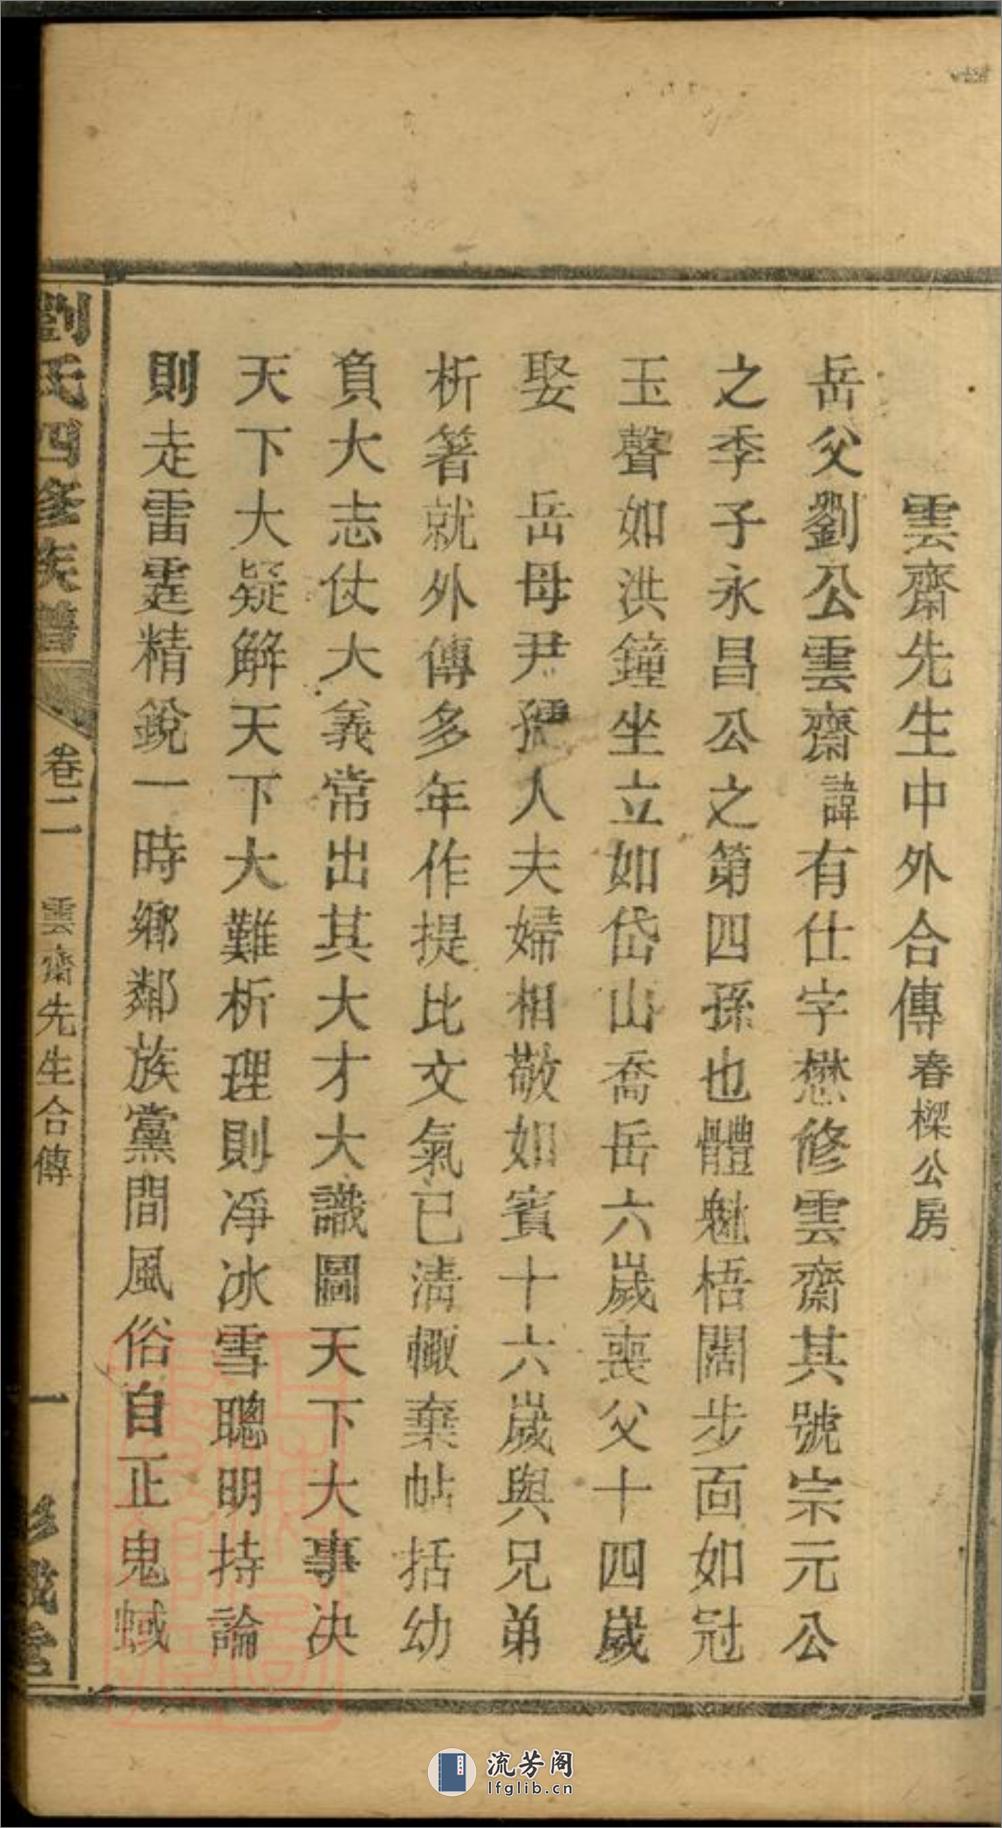 雲齋先生中外合傳春樑公房
岳父劉公雲齋諱有仕字懋修雲齋其號宗元公
之季子永昌公之第四孫也體魁梧闊步面如冠
玉聲如洪鐘坐立如岱山喬岳六歲喪父十四歲
娶 岳母尹孺人夫婦相敬如賓十六歲與兄弟
析箸就外傳多年作提比文氣已淸轍棄帖括幼
負大志仗大義常出其大才大識圖天下大事决
天下大疑解天下大難析理則凈冰雪聰明持論
則走雷霆精銳一時鄉鄰族黨間風俗自正鬼蜮
劉氏四修族譜 卷二 雲齋先生合傳 一
流芳阁
lfglib.cn